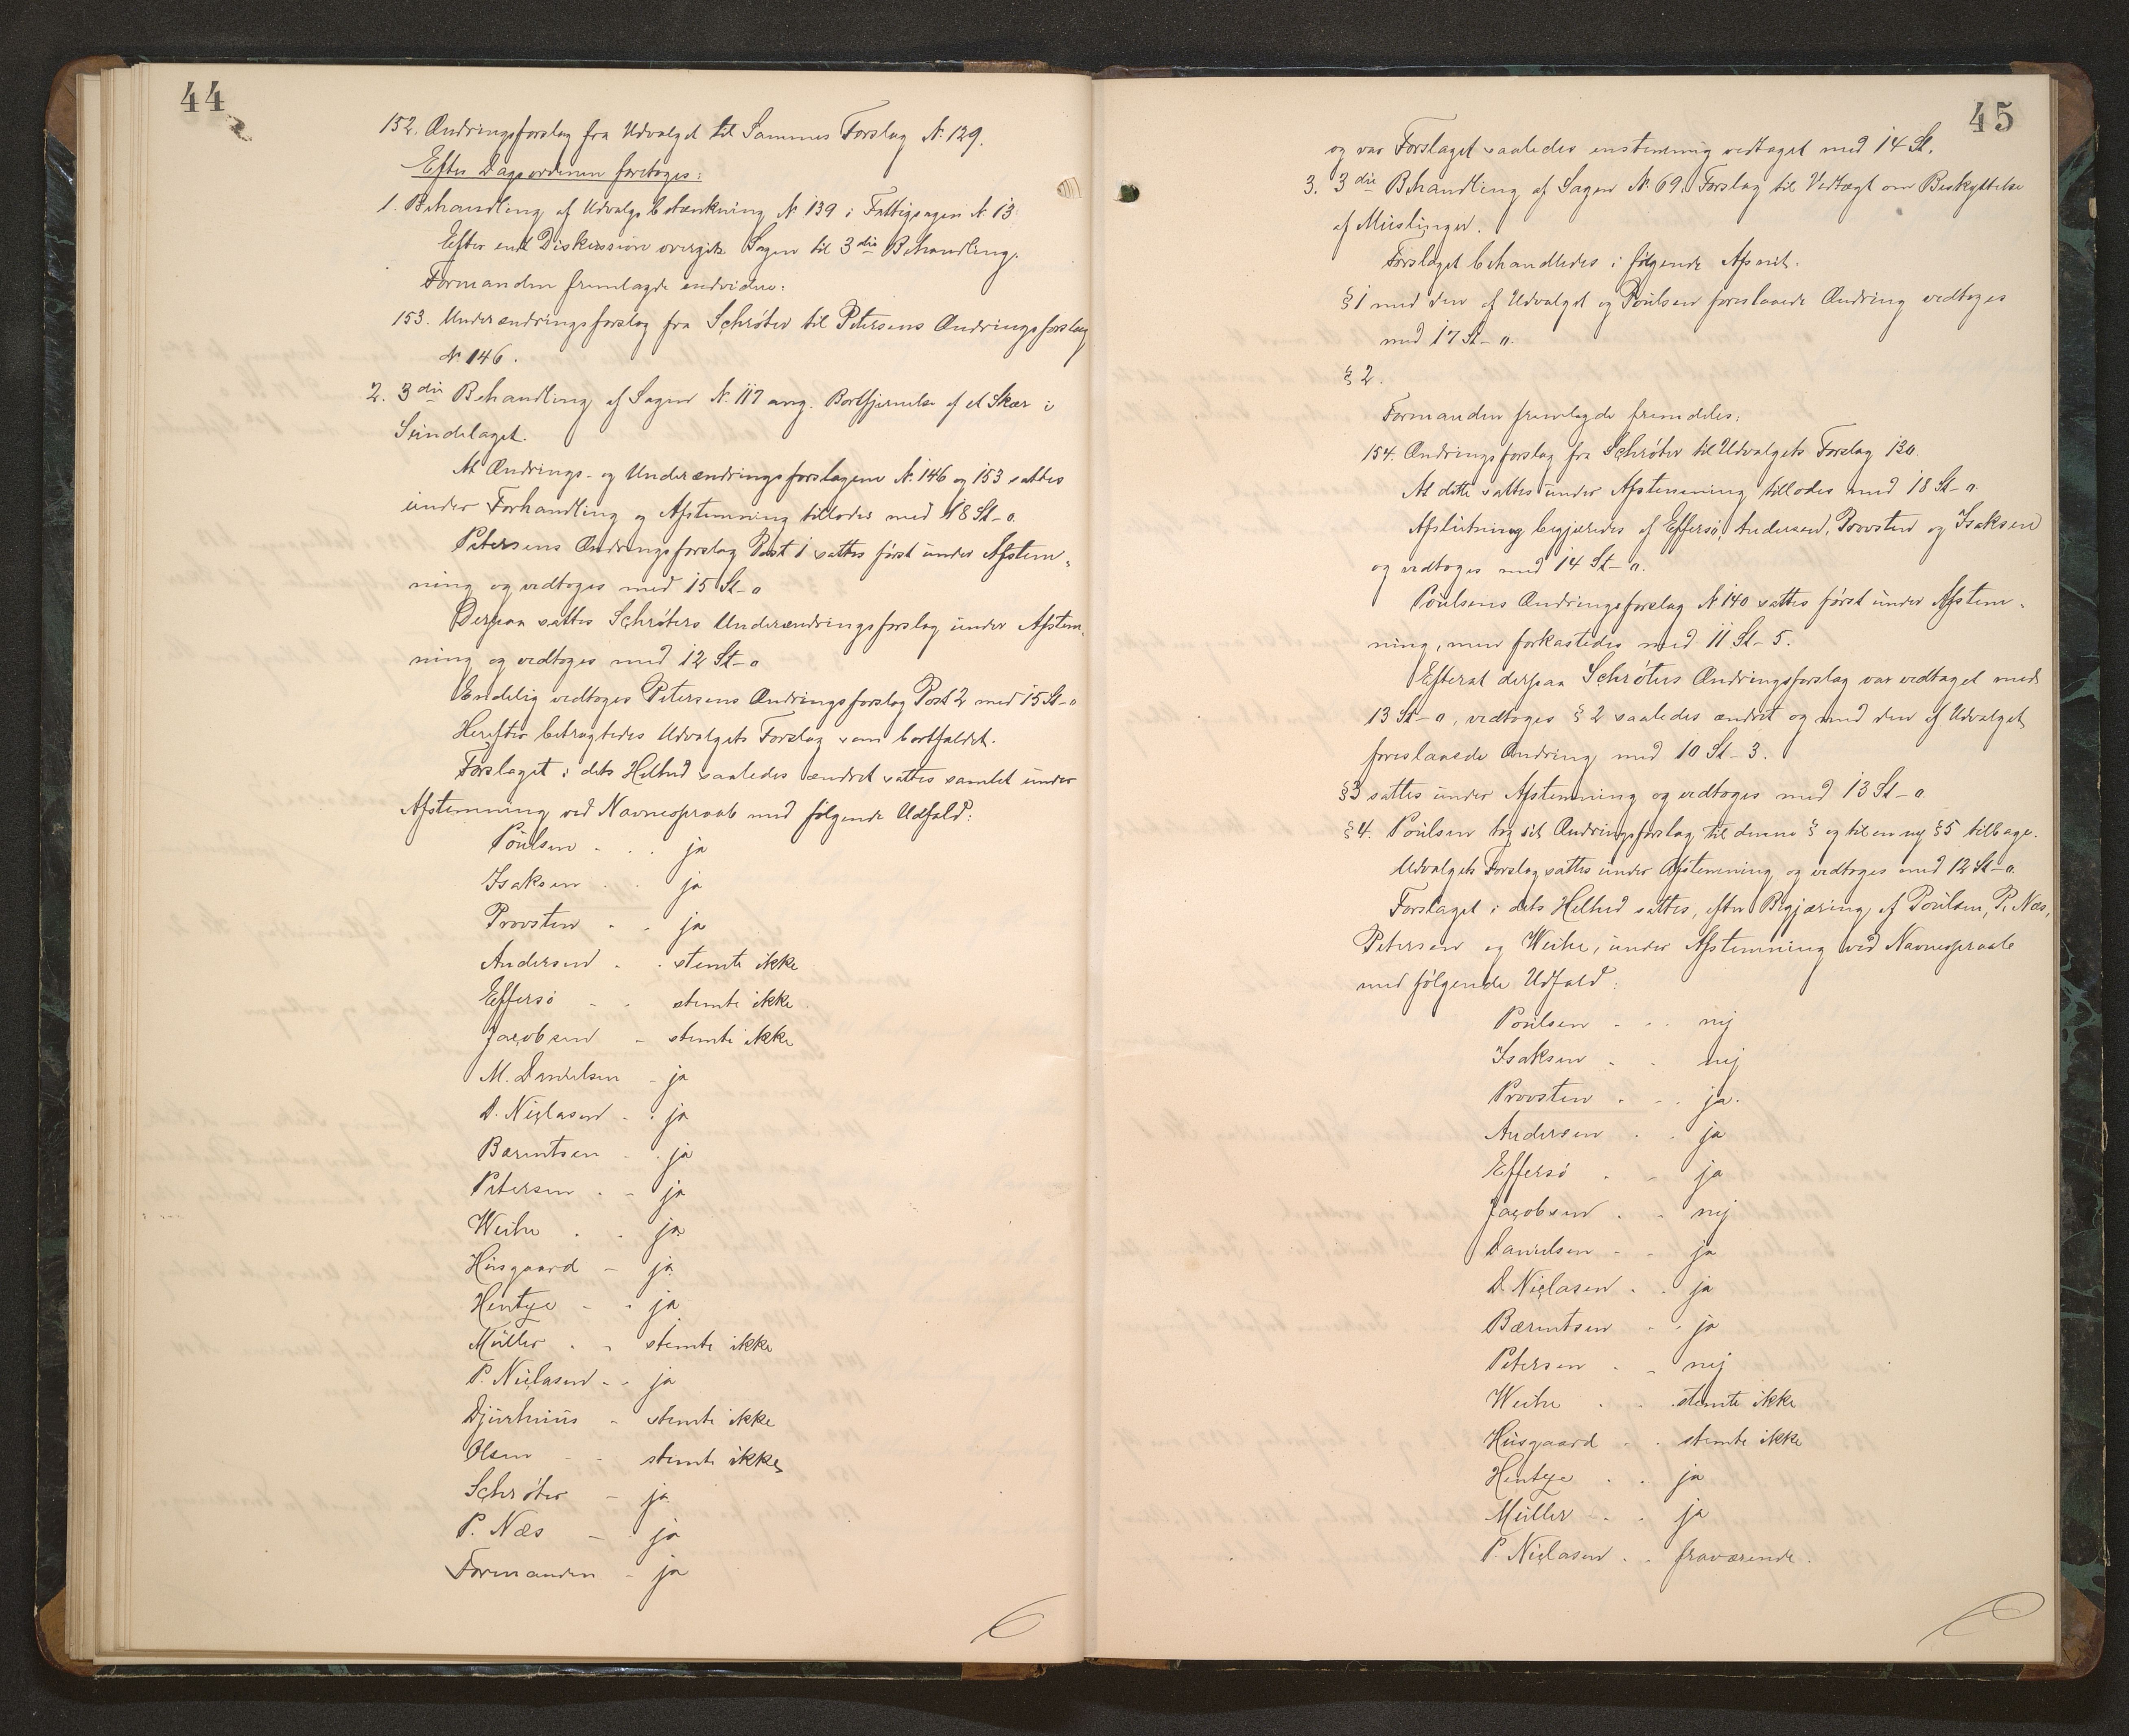 44
152. Ændringsforslag fra Udvalget til Sammes Forslag № 129.
Efter Dagsordenen foretoges:
1. Behandling af Udvalgsbetænkning № 139 i Fattigsagen № 13
Efter endt Diskussion overgik Sagen til 3die Behandling.
Formanden fremlagde endvidere:
153. Underændringsforslag fra Schrøter til Petersens Ændringsforslag
№ 146.
2. 3die Behandling af Sagen № 117 ang. Bortfjernelse af et Skær i
Sundelaget.
At Ændrings- og Underændringsforslagene № 146 og 153 sattes
under Forhandling og Afstemning tillodes med 18 St-0.
Petersens Ændringsforslag Post 1 sattes først under Afstem-
ning og vedtoges med 15 St-0
Derpaa sattes Schrøters Underændringsforslag under Afstem-
ning og vedtoges med 12 St-0
Endelig vedtoges Petersens Ændringsforslag Post 2 med 15 St-0
Herefter betragtedes Udvalgets Forslag som bortfaldet.
Forslaget i dets Helhed saaledes ændret sattes samlet under
Afstemning ved Navneopraab med følgende Udfald:
Poulsen - - - ja
Isaksen - - ja
Provsten - - ja
Andersen - - stemte ikke
Effersø - - stemte ikke.
Jacobsen - stemte ikke
M. Danielsen - ja
D. Niclasen - - ja
Bærentsen - - ja
Petersen - - ja
Weihe - - ja
Husgaard - ja
Hentze - - ja
Müller - - stemte ikke
P. Niclasen - - ja
Djurhuus - stemte ikke
Olsen - - stemte ikke
Schrøter - ja
P. Næs - ja
Formanden - ja
45
og var Forslaget saaledes enstemmig vedtaget med 14 St.
3. 3die Behandling af Sagen № 69. Forslag til Vedtægt om Beskyttelse
af Muslinger.
Forslaget behandledes i følgende Afsnit.
§ 1 med den af Udvalget og Poulsen foreslaaede Ændring vedtoges
med 17 St-0.
§ 2.
Formanden fremlagde fremdeles:
154. Ændringsforslag fra Schrøter til Udvalgets Forslag 130.
At dette sattes under Afstemning tillodes med 18 St-0.
Afslutning begjæredes af Effersø, Andersen, Provsten og Isaksen
og vedtoges med 14 St-0.
Poulsens Ændringsforslag № 140 sattes først under Afstem-
ning, men forkastedes med 11 St-5.
Efterat derpaa Schrøters Ændringsforslag var vedtaget med
13 St-0, vedtoges § 2 saaledes ændret og med den af Udvalget
foreslaaede Ændring med 10 St-3.
§ 3 sattes under Afstemning og vedtoges med 13 St-0.
§ 4. Poulsen tog sit Ændringsforslag til denne § og til en ny § 5 tilbage.
Udvalgets Forslag sattes under Afstemning og vedtoges med 12 St-0.
Forslaget i dets Helhed sattes, efter Begjæring af Poulsen, P. Næs,
Petersen og Weihe, under Afstemning ved Navneopraab
med følgende Udfald:
Poulsen - - - nej
Isaksen - - nej
Provsten - - - ja.
Andersen - - ja
Effersø - - ja
Jacobsen - - nej
Danielsen - - ja
D. Niclasen - - ja
Bærentsen - - ja
Petersen - - nej
Weihe - - stemte ikke
Husgaard - - stemte ikke
Hentze - - ja
Müller - - ja
P. Niclasen - - fraværende.